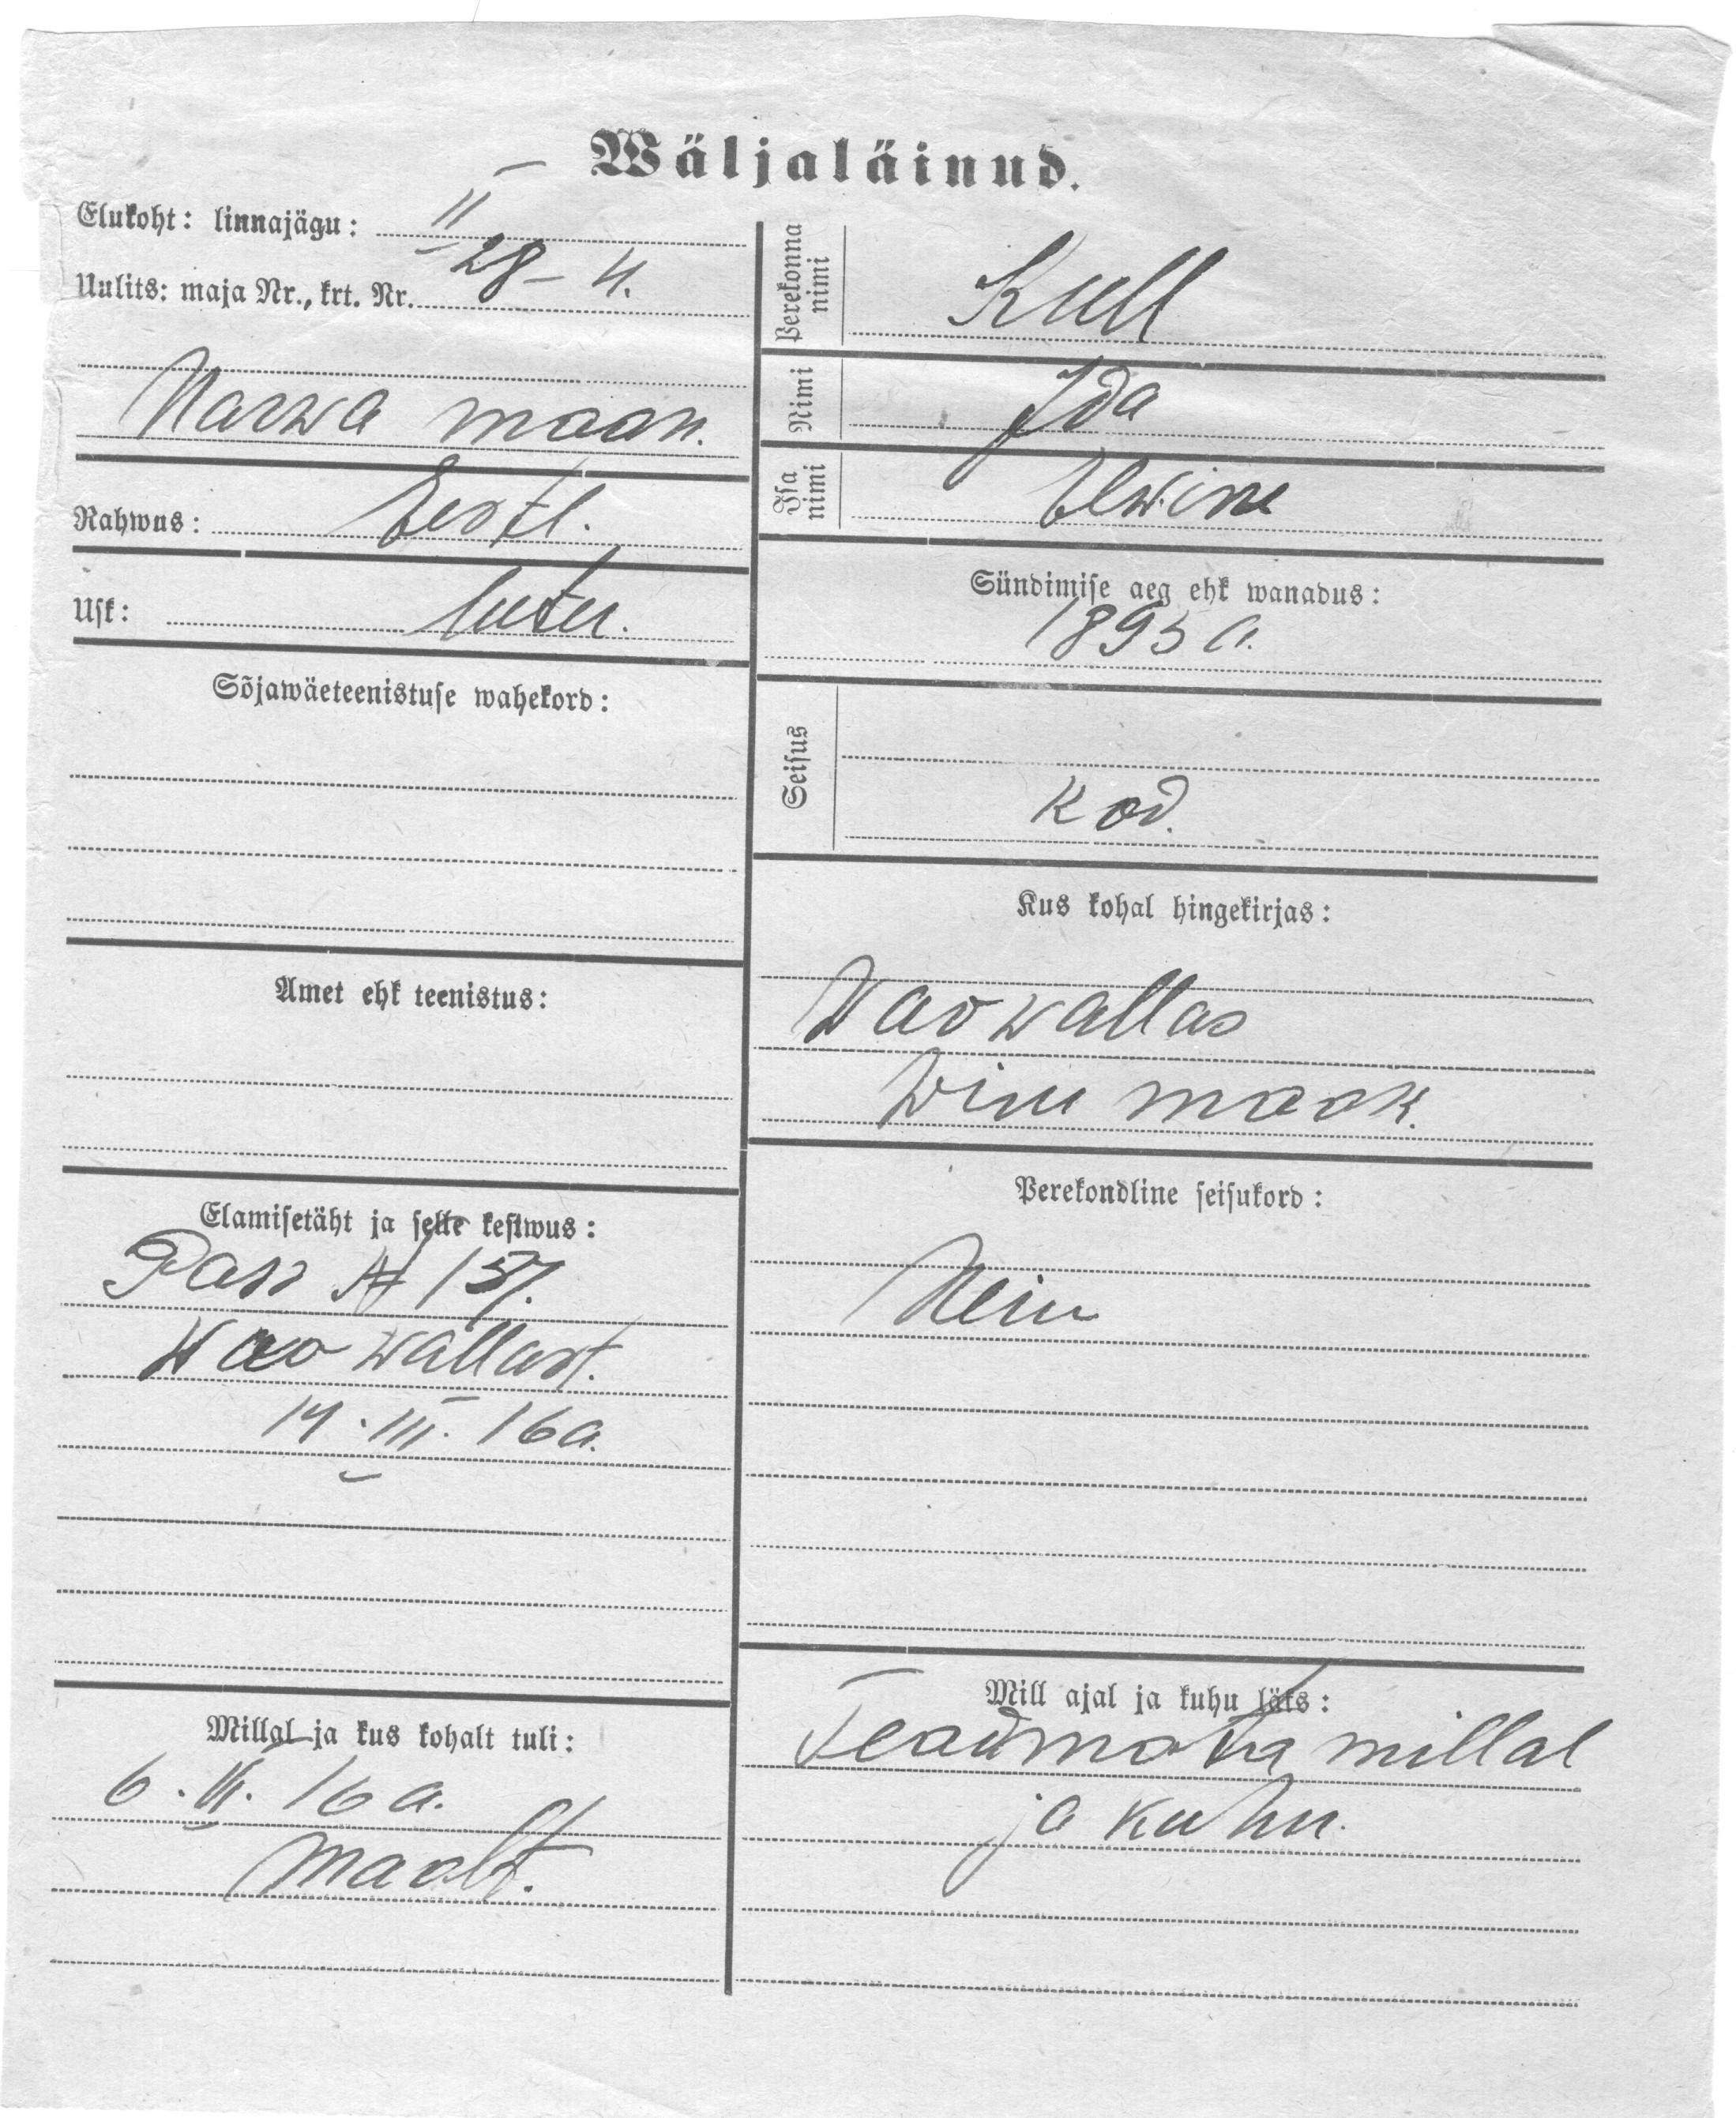 Wäljaläinud.
Elukoht: linnajägu: II
Uulits: maja Nr., krt. Nr. 28 – 4.
Narwa maan.
Rahwus: Eestl.
Usk: luter.
Sõjawäeteenistuse wahekord:
Amet ehk teenistus:
Elamisetäht ja selle kestwus:
Pass № 157.
Wao wallast.
14. III. 16 a.
Millal ja kus kohalt tuli:
6. VI. 16 a.
maalt.
Perekonna nimi Kull
Nimi Ida
Isa nimi Elwine
Sündimise aeg ehk wanadus:
1895 a.
Seisus
kod.
Kus kohal hingekirjas:
Wao wallas
Wiru maak.
Perekondline seisukord:
Neiu
Mill ajal ja kuhu läks:
Teadmata millal
ja kuhu.